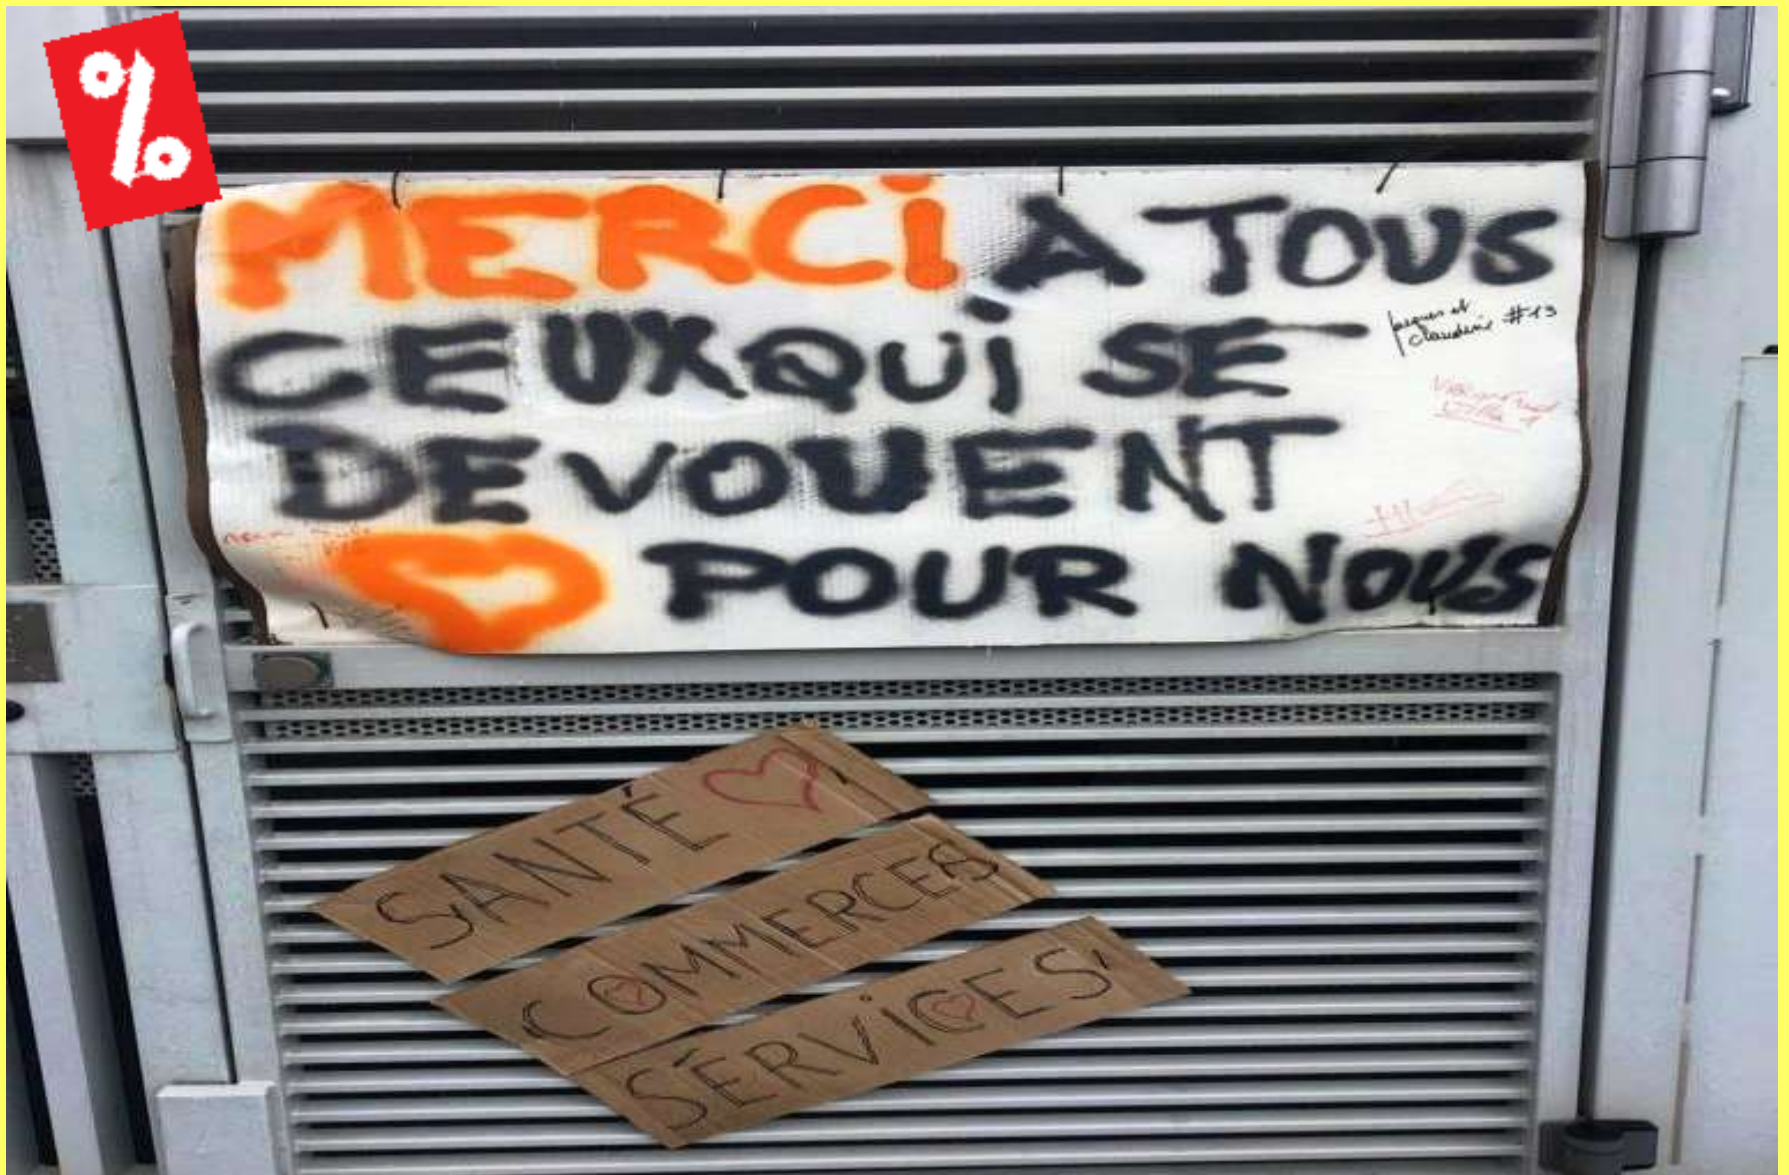 %
MERCi A TOUS
CEUX QUi SE
DEVOUENT
POUR NOUS
Jacques et
Claudine #13
SANTÉ
COMMERCES
SERViCES